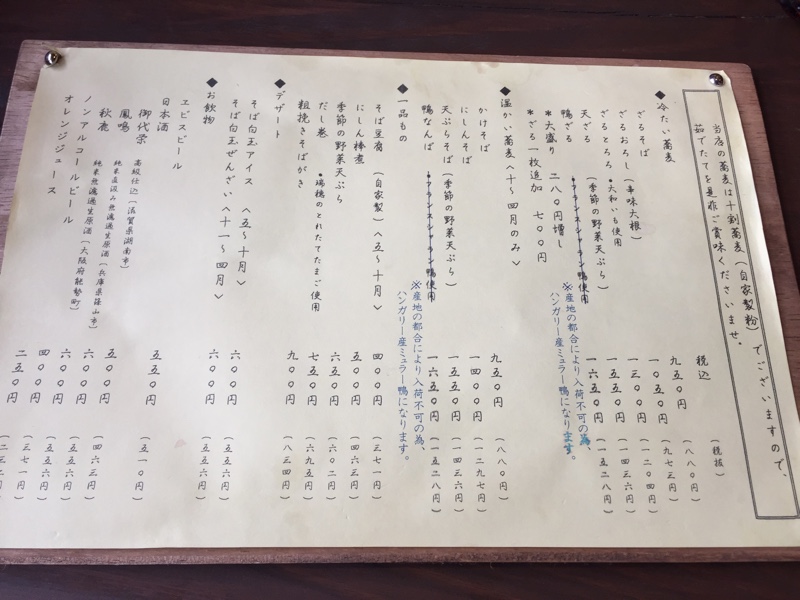 当店の蕎麦は十割蕎麦(自家製粉)でございますので、
茹でたてを是非ご賞味くださいませ。
税込 (税抜)
◆冷たい蕎麦
ざるそば 九五〇円 (八八〇円)
ざるおろし(辛味大根) 一〇五〇円 (九七三円)
ざるとろろ ・大和いも使用 一三〇〇円 (一二〇四円)
天ざる(季節の野菜天ぷら) 一五五〇円 (一四三六円)
鴨ざる ・フランスシャラン鴨使用 一六五〇円 (一五二八円)
※産地の都合により入荷不可の為、
ハンガリー産ミュラー鴨になります。
*大盛り 二八〇円増し
*ざる一枚追加 七〇〇円
◆温かい蕎麦〈十〜四月のみ〉
かけそば 九五〇円 (八八〇円)
にしんそば 一四〇〇円 (一二九七円)
天ぷらそば(季節の野菜天ぷら) 一五五〇円 (一四三六円)
鴨なんば ・フランスシャラン鴨使用 一六五〇円 (一五二八円)
※産地の都合により入荷不可の為、
ハンガリー産ミュラー鴨になります。
◆一品もの
そば豆腐(自家製)〈五〜十月〉 四〇〇円 (三七一円)
にしん棒煮 五五〇円 (五一〇円)
季節の野菜天ぷら 六五〇円 (六〇二円)
だし巻 ・瑞穂のとれたてたまご使用 七五〇円 (六九五円)
粗挽きそばがき 九〇〇円 (八三四円)
◆デザート
そば白玉アイス〈五〜十月〉 六〇〇円 (五五六円)
そば白玉ぜんざい〈十一〜四月〉 六〇〇円 (五五六円)
◆お飲物
ヱビスビール 五五〇円 (五一〇円)
日本酒
御代栄 高級仕込(滋賀県湖南市) 五〇〇円 (四六三円)
鳳鳴 純米直汲み無濾過生原酒(兵庫県篠山市) 六〇〇円 (五五六円)
秋鹿 純米無濾過生原酒(大阪府能勢町) 六〇〇円 (五五六円)
ノンアルコールビール 四〇〇円 (三七一円)
オレンジジュース 二五〇円 (二三二円)